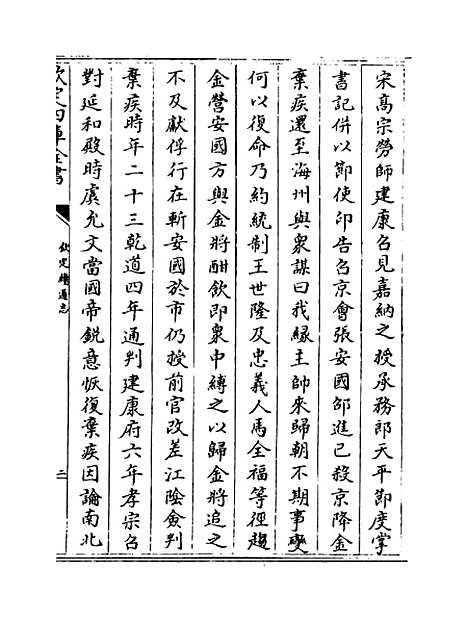 宋髙宗勞師建康召見嘉納之授承務郎天平節度掌
書記併以節使印告召京會張安國邵進已殺京降金
棄疾還至海州與衆謀曰我縁主帥來歸朝不期事變
何以復命乃約統制王世隆及忠義人馬全福等徑趨
金營安國方與金將酣飲即衆中縛之以歸金將追之
不及獻俘行在斬安國於市仍授前官改差江陰僉判
棄疾時年二十三乾道四年通判建康府六年孝宗召
對延和殿時虞允文當國帝銳意恢復棄疾因論南北
欽定四庫全書
欽定續通志
二